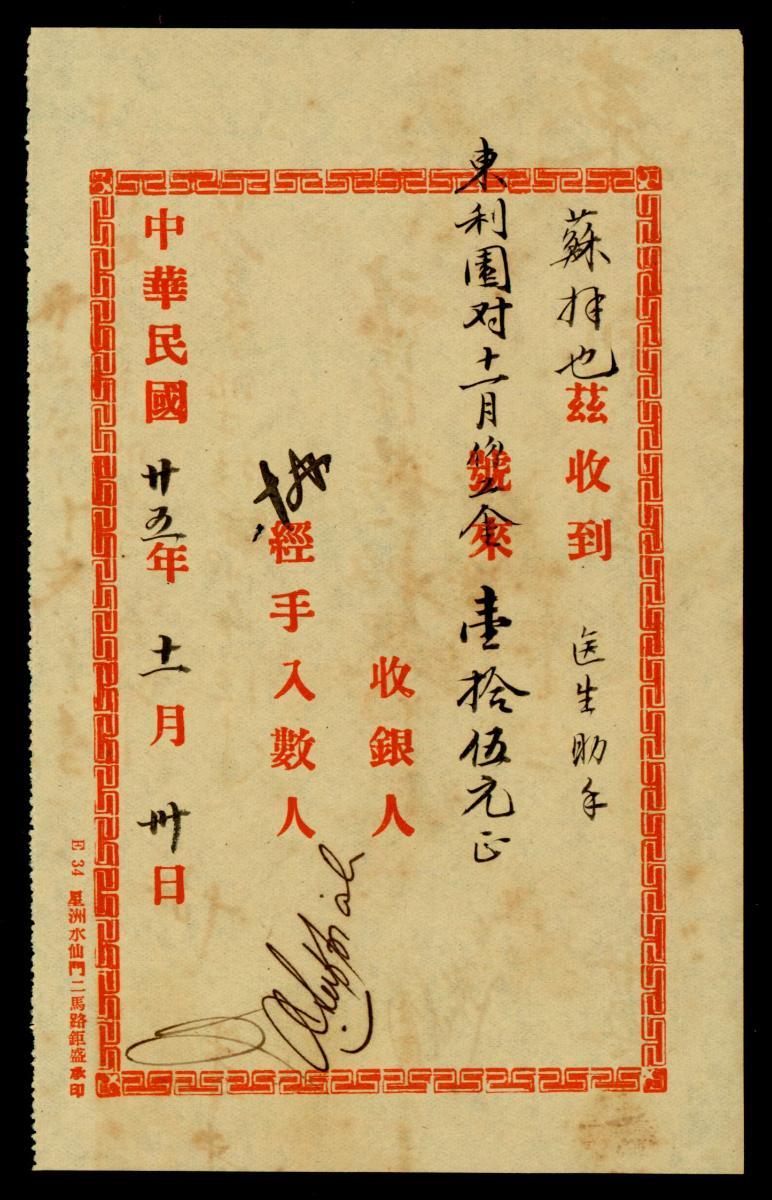 蘇拜也茲收到 医生助手
東利園对十一月薪金號來壹拾伍元正
收銀人
經手入數人
中華民國廿五年十一月卅日
E 34 星洲水仙門二馬路鉅盛承印